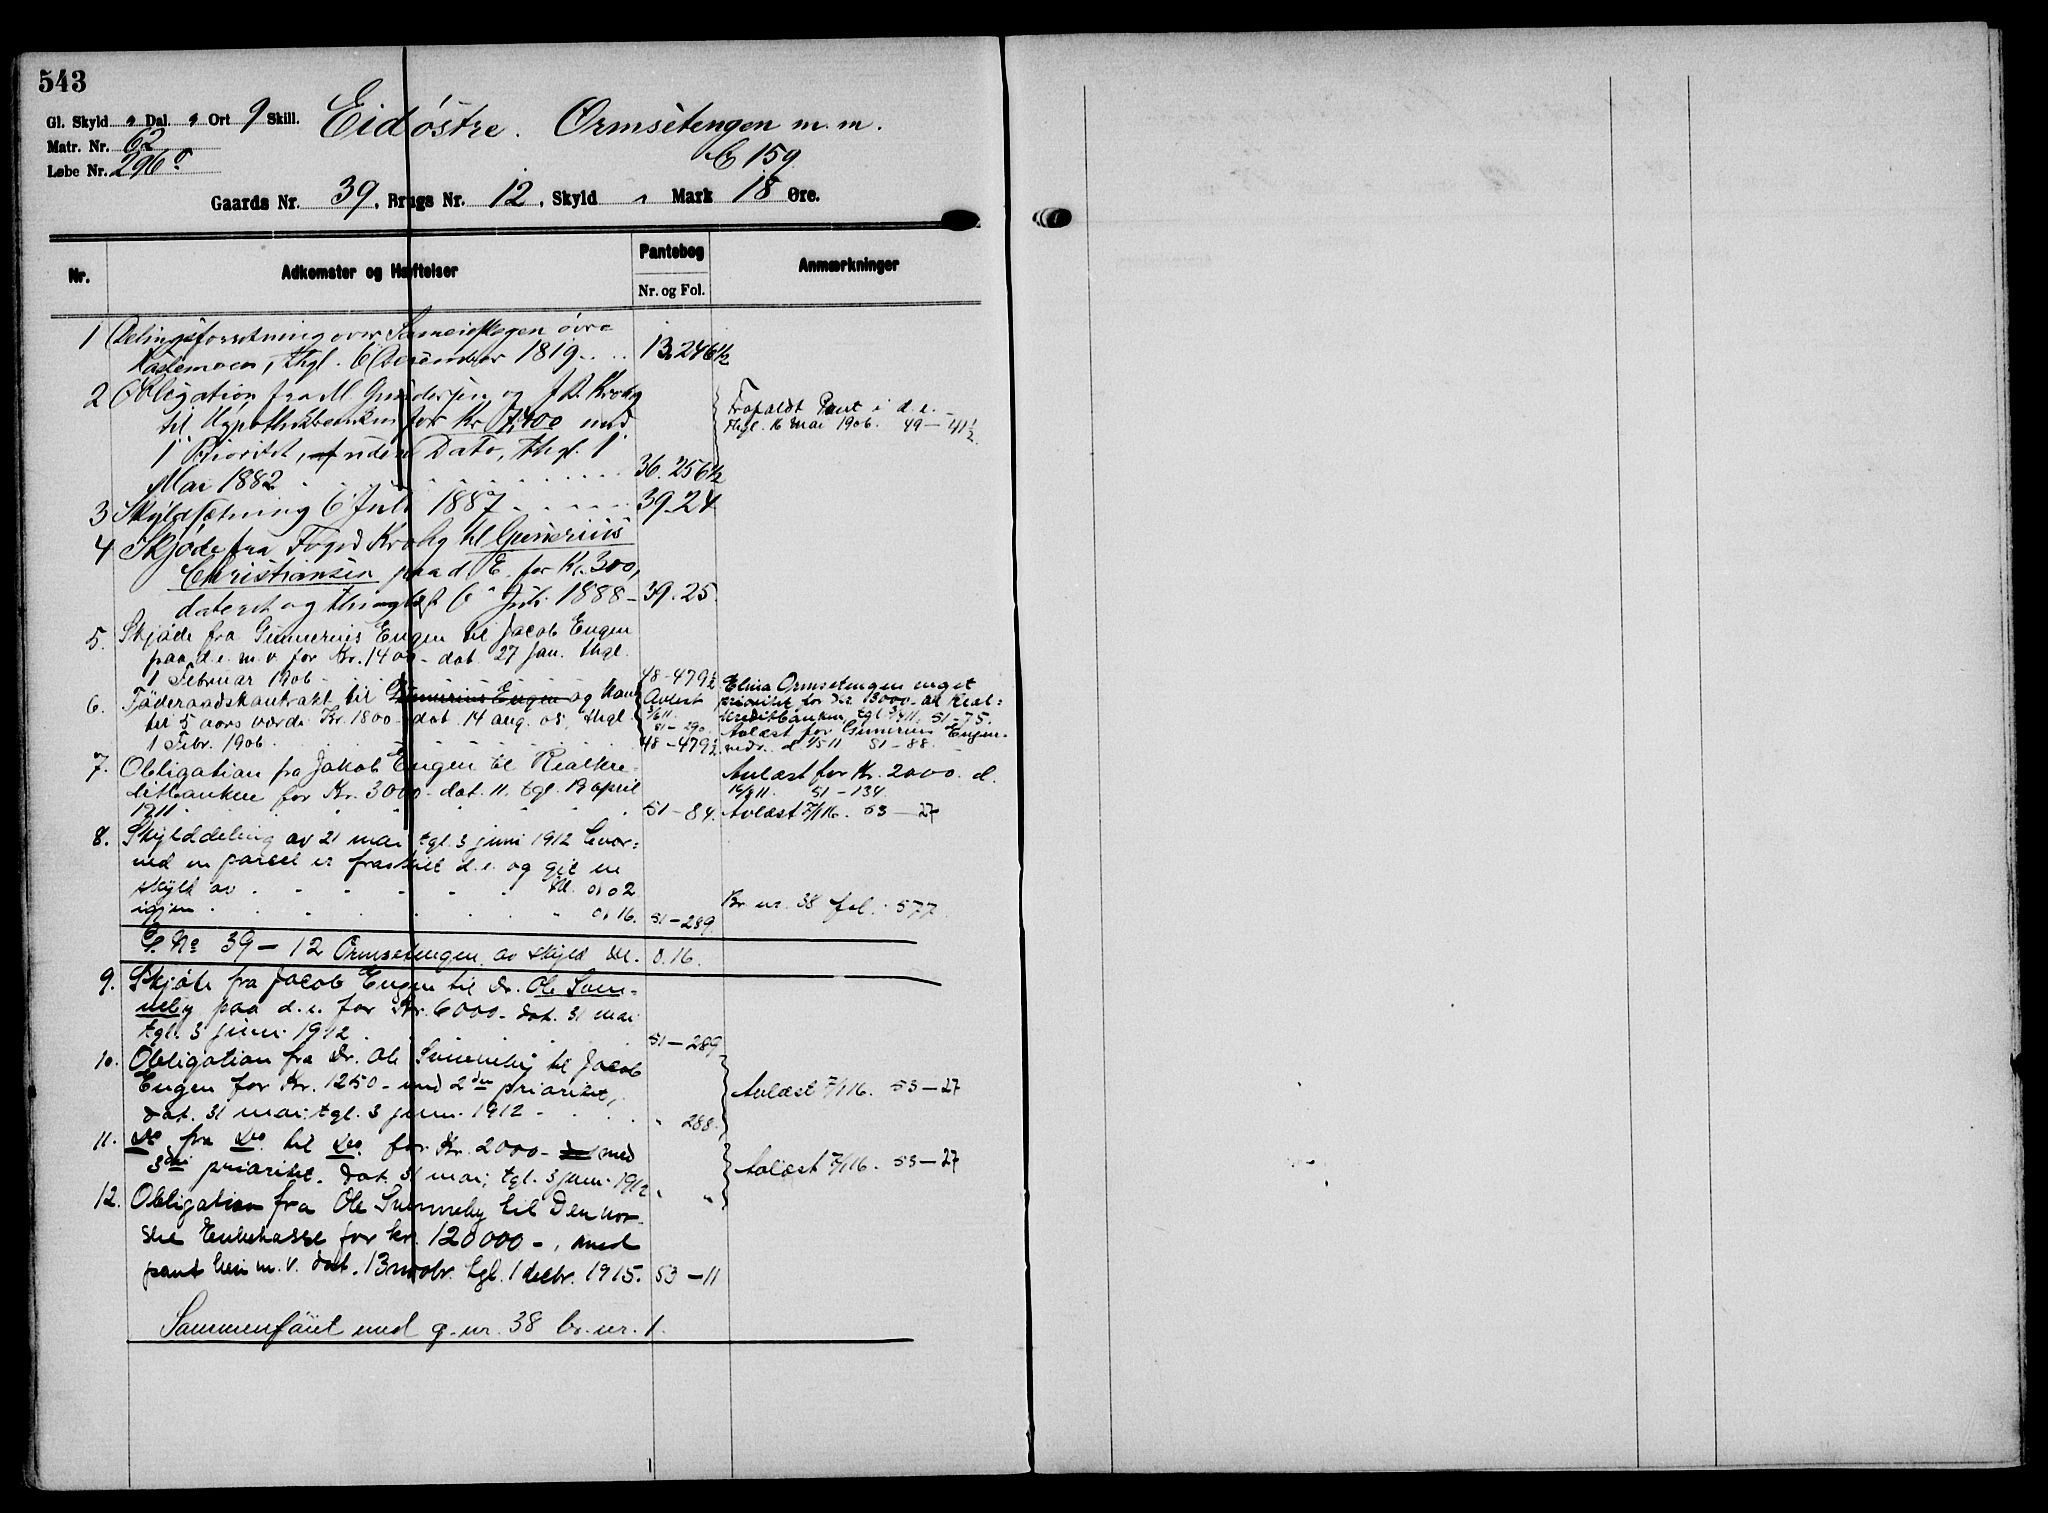 543
Gl. Skyld " Dal. " Ort 9 Skill. Eid østre. Ormsetengen m. m.
Matr. Nr. 62
Løbe Nr. 296 159
Gaards Nr. 39, Brugs Nr. 12, Skyld " Mark 18 Øre.
Nr. Adkomster og Hæftelser Pantebog Anmærkninger
Nr. og Fol.
1 Delingsforretning over Sameieskogen øvre
thgl. 6 December 1819 13.246½
2 Obligation fra M Gundersen og J. D. Krohg
til Hypothekbanken for Kr 7,400 med
1 Prioritet, uden Dato, thgl. 1
Mai 1882 36.256½
Frafaldt Pant i d. e.
thgl. 16 Mai 1906. 49-41½
3 Skyldsætning 6 Juli 1887 39.24
4 Skjøde fra Foged Krohg til Gunerius
Christiansen paa d. E. for Kr. 300,
dateret og thinglæst 6 Juli 1888 - 39.25.
5. Skjøde fra Gunnerius Engen til Jacob Engen
paa d. e. m. v. for Kr. 1400- dat. 27 Jan. thgl.
1 Februar 1906 - 48-479½
6. Føderaadskontrakt til Gunnerius Engen og Kone
til 5 aars værdi Kr. 1800- dat. 14 aug. 05, thgl.
1 Febr. 1906. 48-479½
Avlæst
51-290
Elina Ormsetengen veget
prioritet for Kr. 3000- til Real-
kreditbanken, tgl. 51-75.
Avlæst for Gunerius Engen.
51-88.
7. Obligation fra Jakob Engen til Realkre-
ditbanken for Kr. 3000- dat. 11. tgl. 19 april
1911. 51-84.
Avlæst for Kr. 2000. d.
51-134.
Avlæst 7/1 16. 53-27
8. Skylddeling av 21 mai tgl. 3 juni 1912 hvor-
ved en parcel er fraskilt d. e. og git en
skyld av M. 0,02
igjen 0,16. 51-289.
Br nr. 38 fol. 577.
G. No 39-12 Ormsetengen av skyld M. 0.16.
9. Skjøte fra Jacob Engen til Dr. Ole Sven-
neby paa d. e. for Kr. 6000- dat. 31 mai
tgl. 3 juni 1912 51-289
10. Obligation fra Dr. Ole Svenneby til Jacob
Engen for Kr. 1250- med 2den prioritet,
dat. 31 mai, tgl. 3 juni 1912 - " 288.
Avlæst 7/1 16. 53-27
11. Do fra Do til Do for Kr. 2000- med
3die prioritet. dat. 31 mai, tgl. 3 juni 1912 " "
Avlæst 7/1 16. 53-27
12. Obligation fra Ole Svenneby til Den nor-
ske Enkekasse for kr. 120000-, med
pant heri m. v. dat. 13 novbr. tgl. 1 decbr. 1915. 53-11
Sammenføiet med g. nr. 38 br. nr. 1.